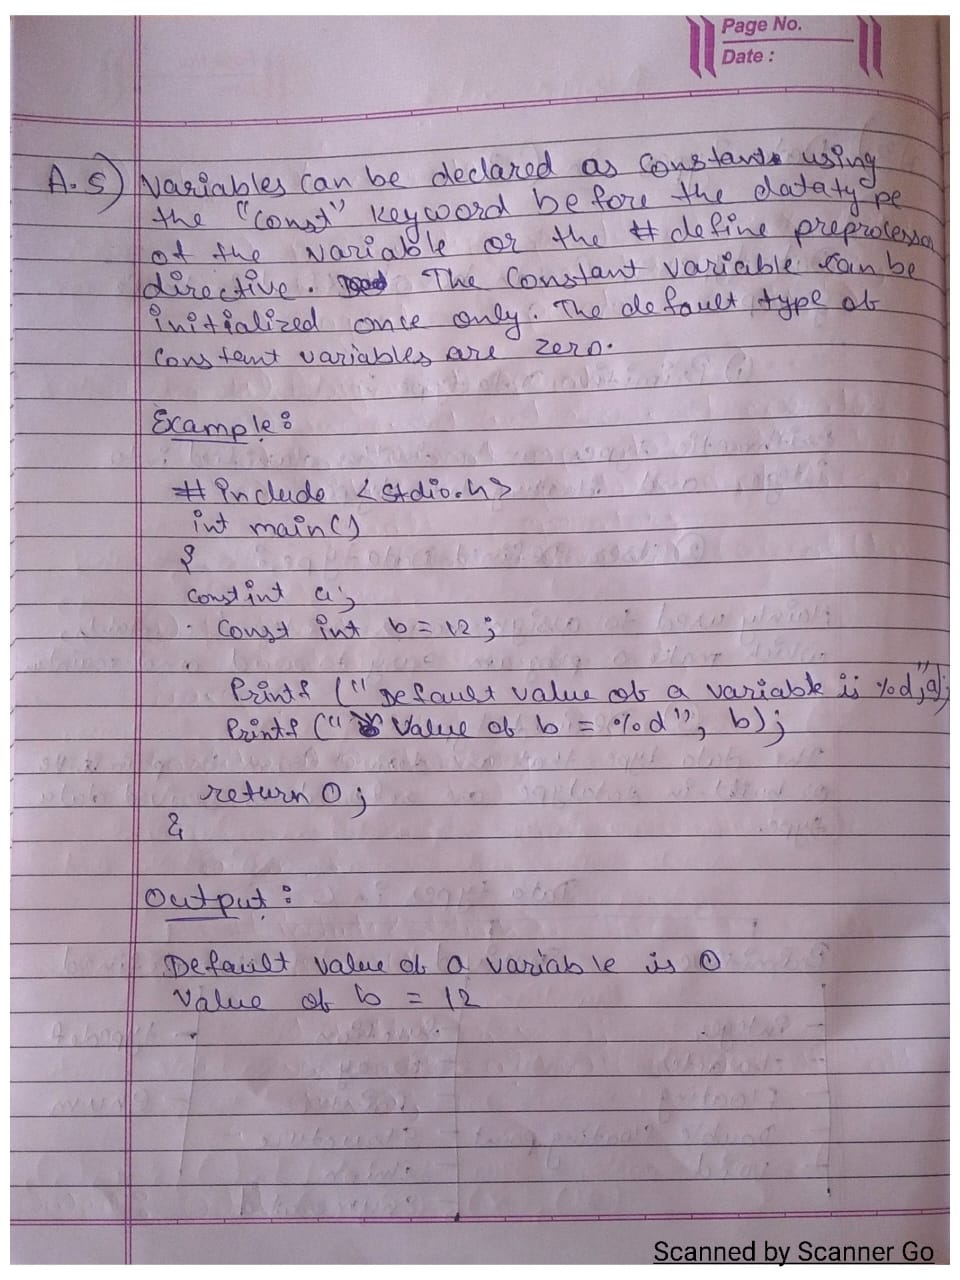 Page No.
Date :
A.5) Variables can be declared as constants using
the "const" keyword before the datatype
of the variable or the #define preprocessor
directive. The constant variable can be
initialized once only. The default type of
constant variables are zero.
Example:
#include <stdio.h>
int main()
{
const int a;
const int b = 12;
Printf ("Default value of a variable is %d",a);
Printf (" Value of b = %d", b);
return 0;
}
Output:
Default value of a variable is 0
Value of b = 12
Scanned by Scanner Go